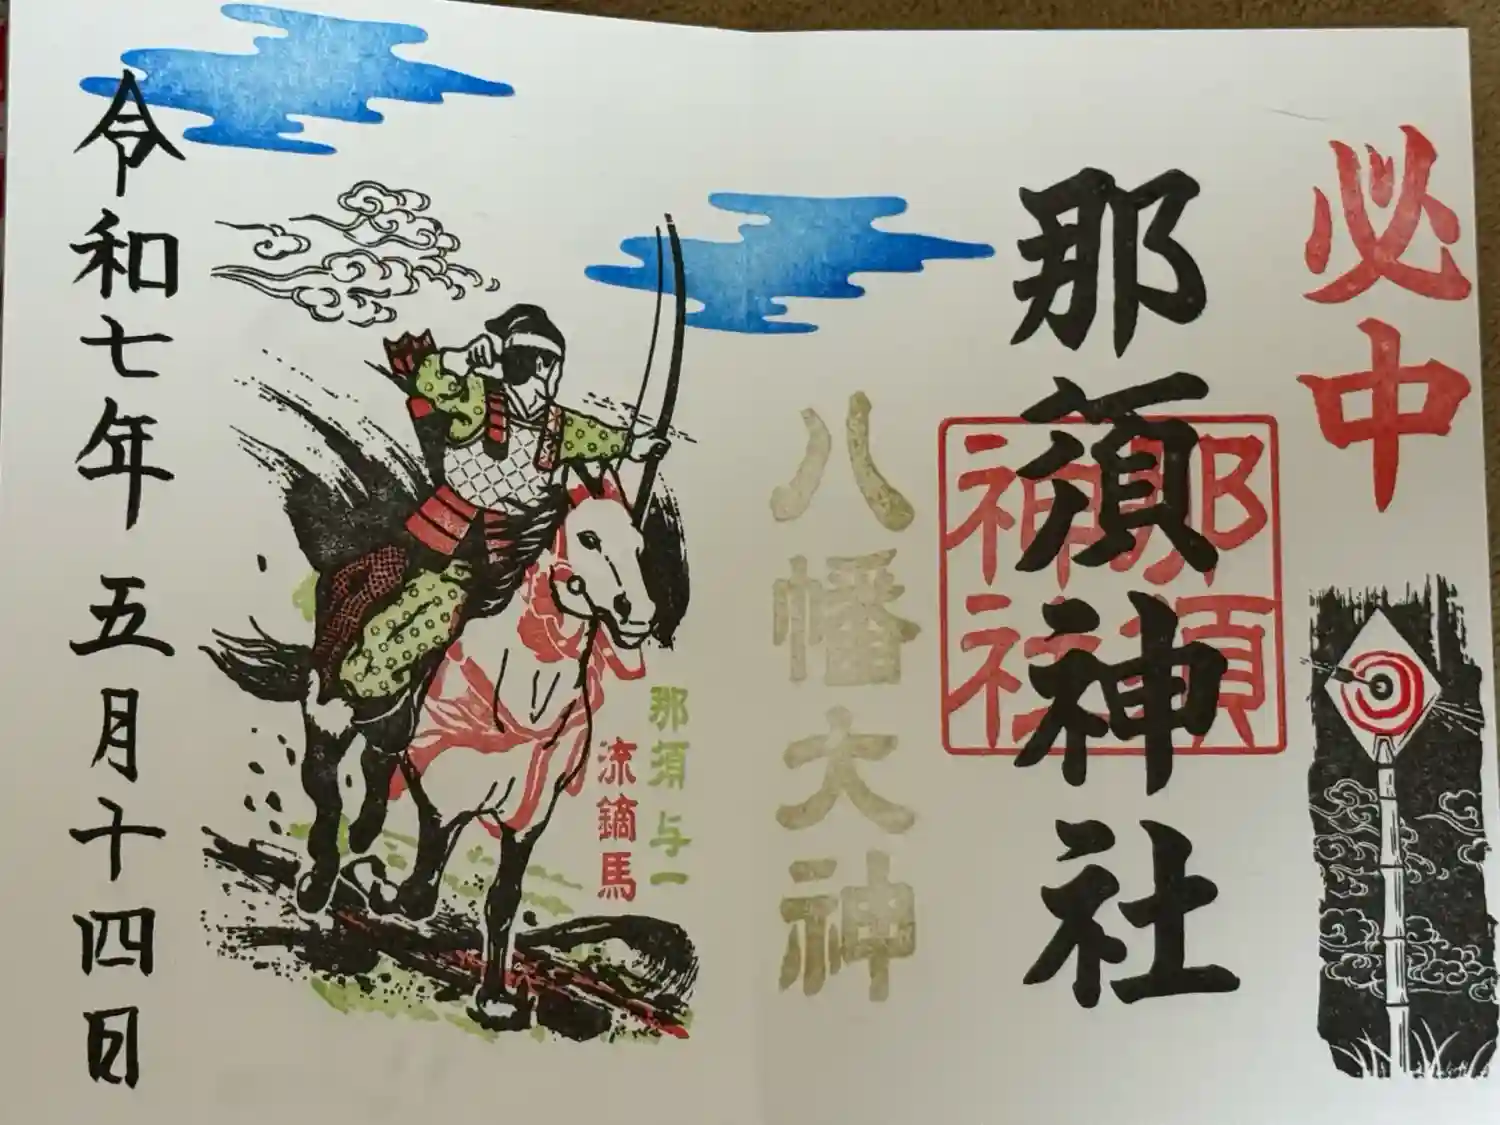 必中
那須神社
那須
神社
八幡大神
那須与一
流鏑馬
令和七年五月十四日